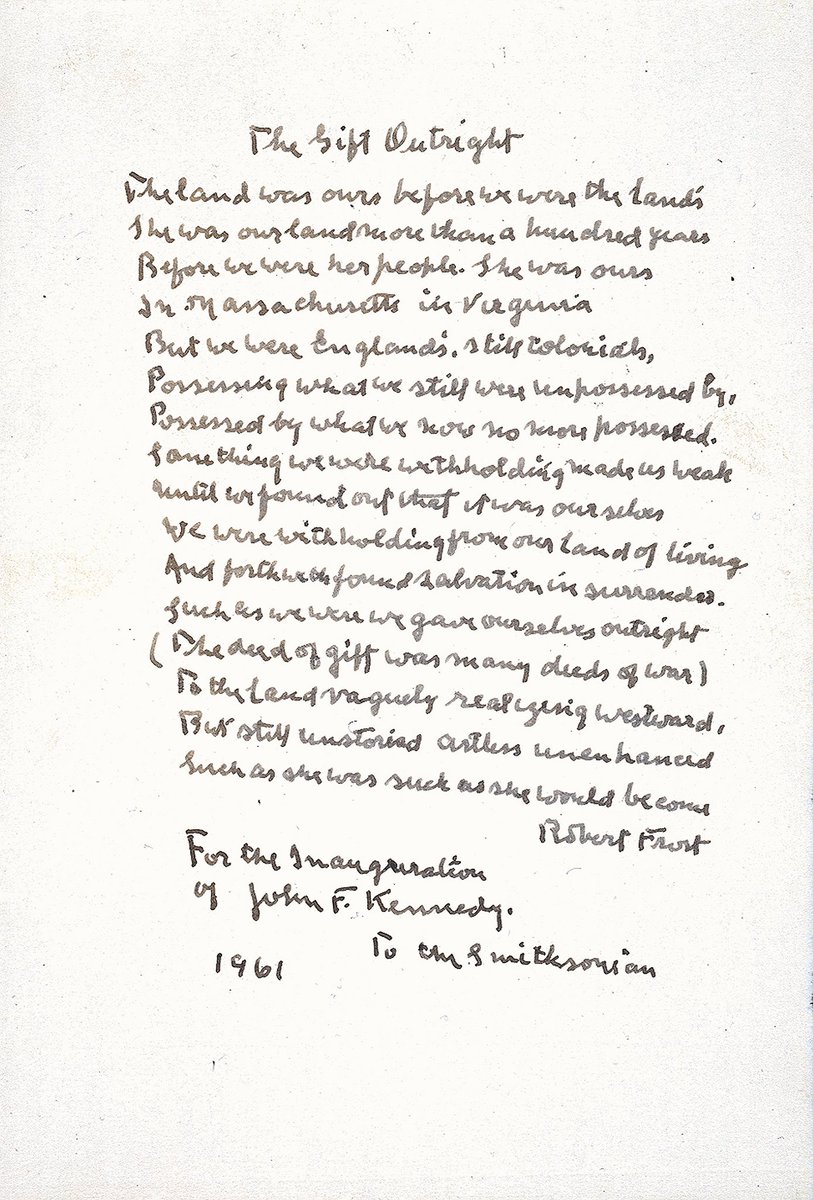 The Gift Outright
The land was ours before we were the land's
She was our land more than a hundred years
Before we were her people. She was ours
In Massachusetts in Virginia
But we were England's, still colonials,
Possessing what we still were unpossessed by,
Possessed by what we now no more possessed.
Something we were withholding made us weak
Until we found out that it was ourselves
We were withholding from our land of living
And forthwith found salvation in surrender.
Such as we were we gave ourselves outright
(The deed of gift was many deeds of war)
To the land vaguely realizing westward,
But still unstoried artless unenhanced
Such as she was such as she would become
Robert Frost
For the Inauguration
of John F. Kennedy.
1961 To the Smithsonian